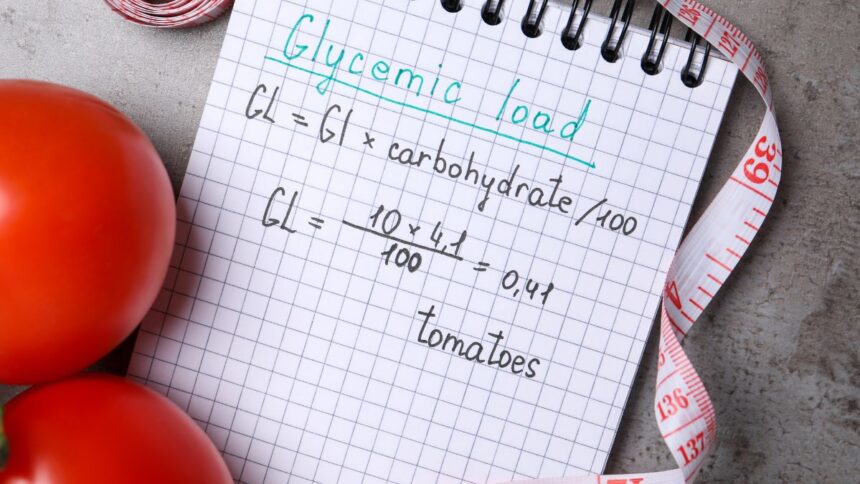 Glycemic load
GL = GI × carbohydrate /100
GL = 10 × 4,1 / 100 = 0,41
tomatoes
126
127
39
4
136
137